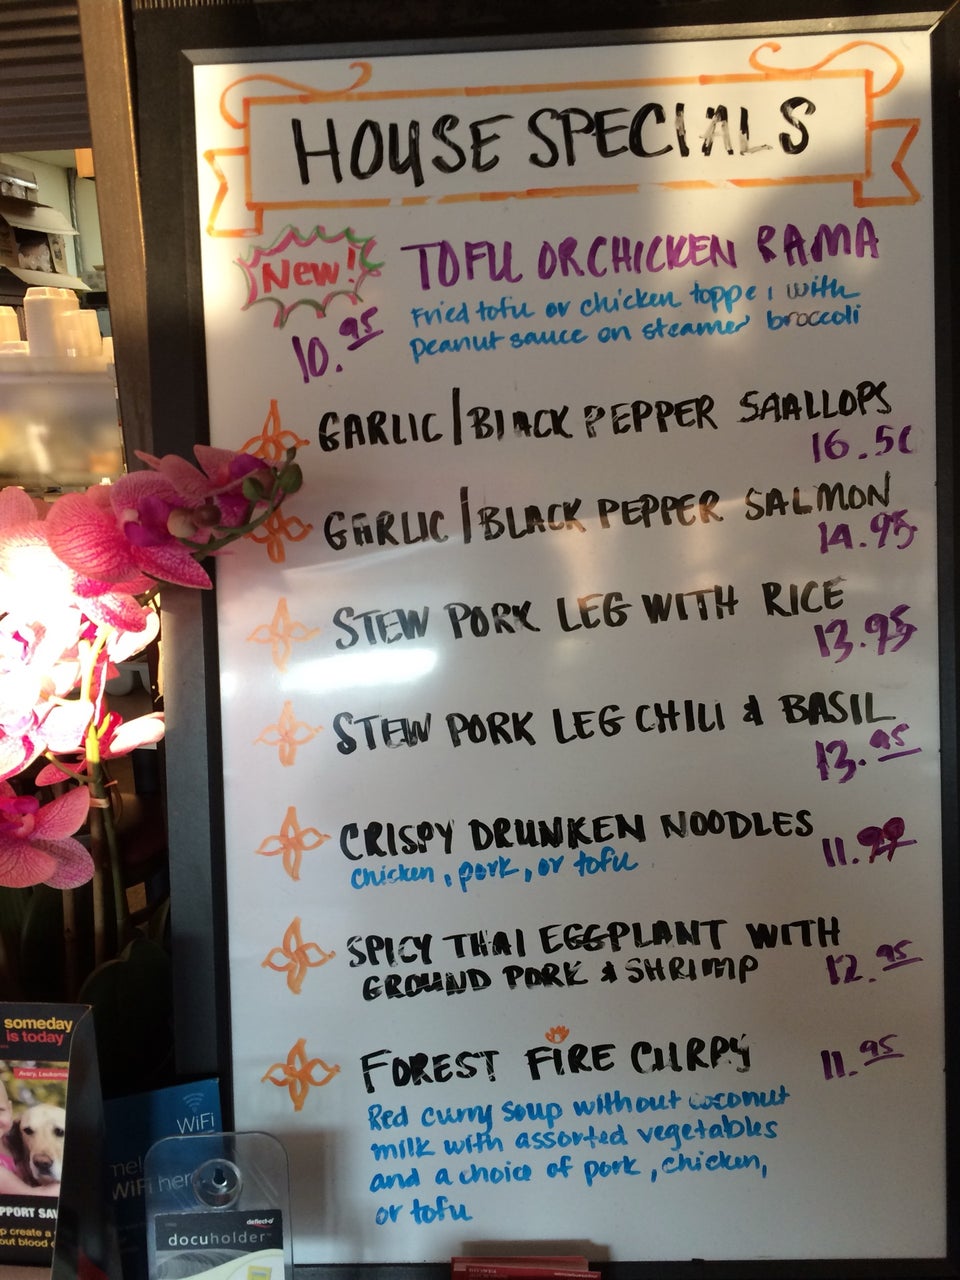 HOUSE SPECIALS
New!
TOFU OR CHICKEN RAMA
Fried tofu or chicken topped with
peanut sauce on steamed broccoli
10.95
GARLIC/BLACK PEPPER SAALLOPS
16.50
GARLIC/BLACK PEPPER SALMON
14.95
STEW PORK LEG WITH RICE
13.95
STEW PORK LEG CHILI & BASIL
13.95
CRISPY DRUNKEN NOODLES
11.99
chicken, pork, or tofu
SPICY THAI EGGPLANT WITH
GROUND PORK & SHRIMP
12.95
FOREST FIRE CURRY
11.95
Red curry soup without coconut
milk with assorted vegetables
and a choice of pork, chicken,
or tofu
someday
is today
Avery, Leukemia
WiFi
WiFi her
deflect-o
docuholder